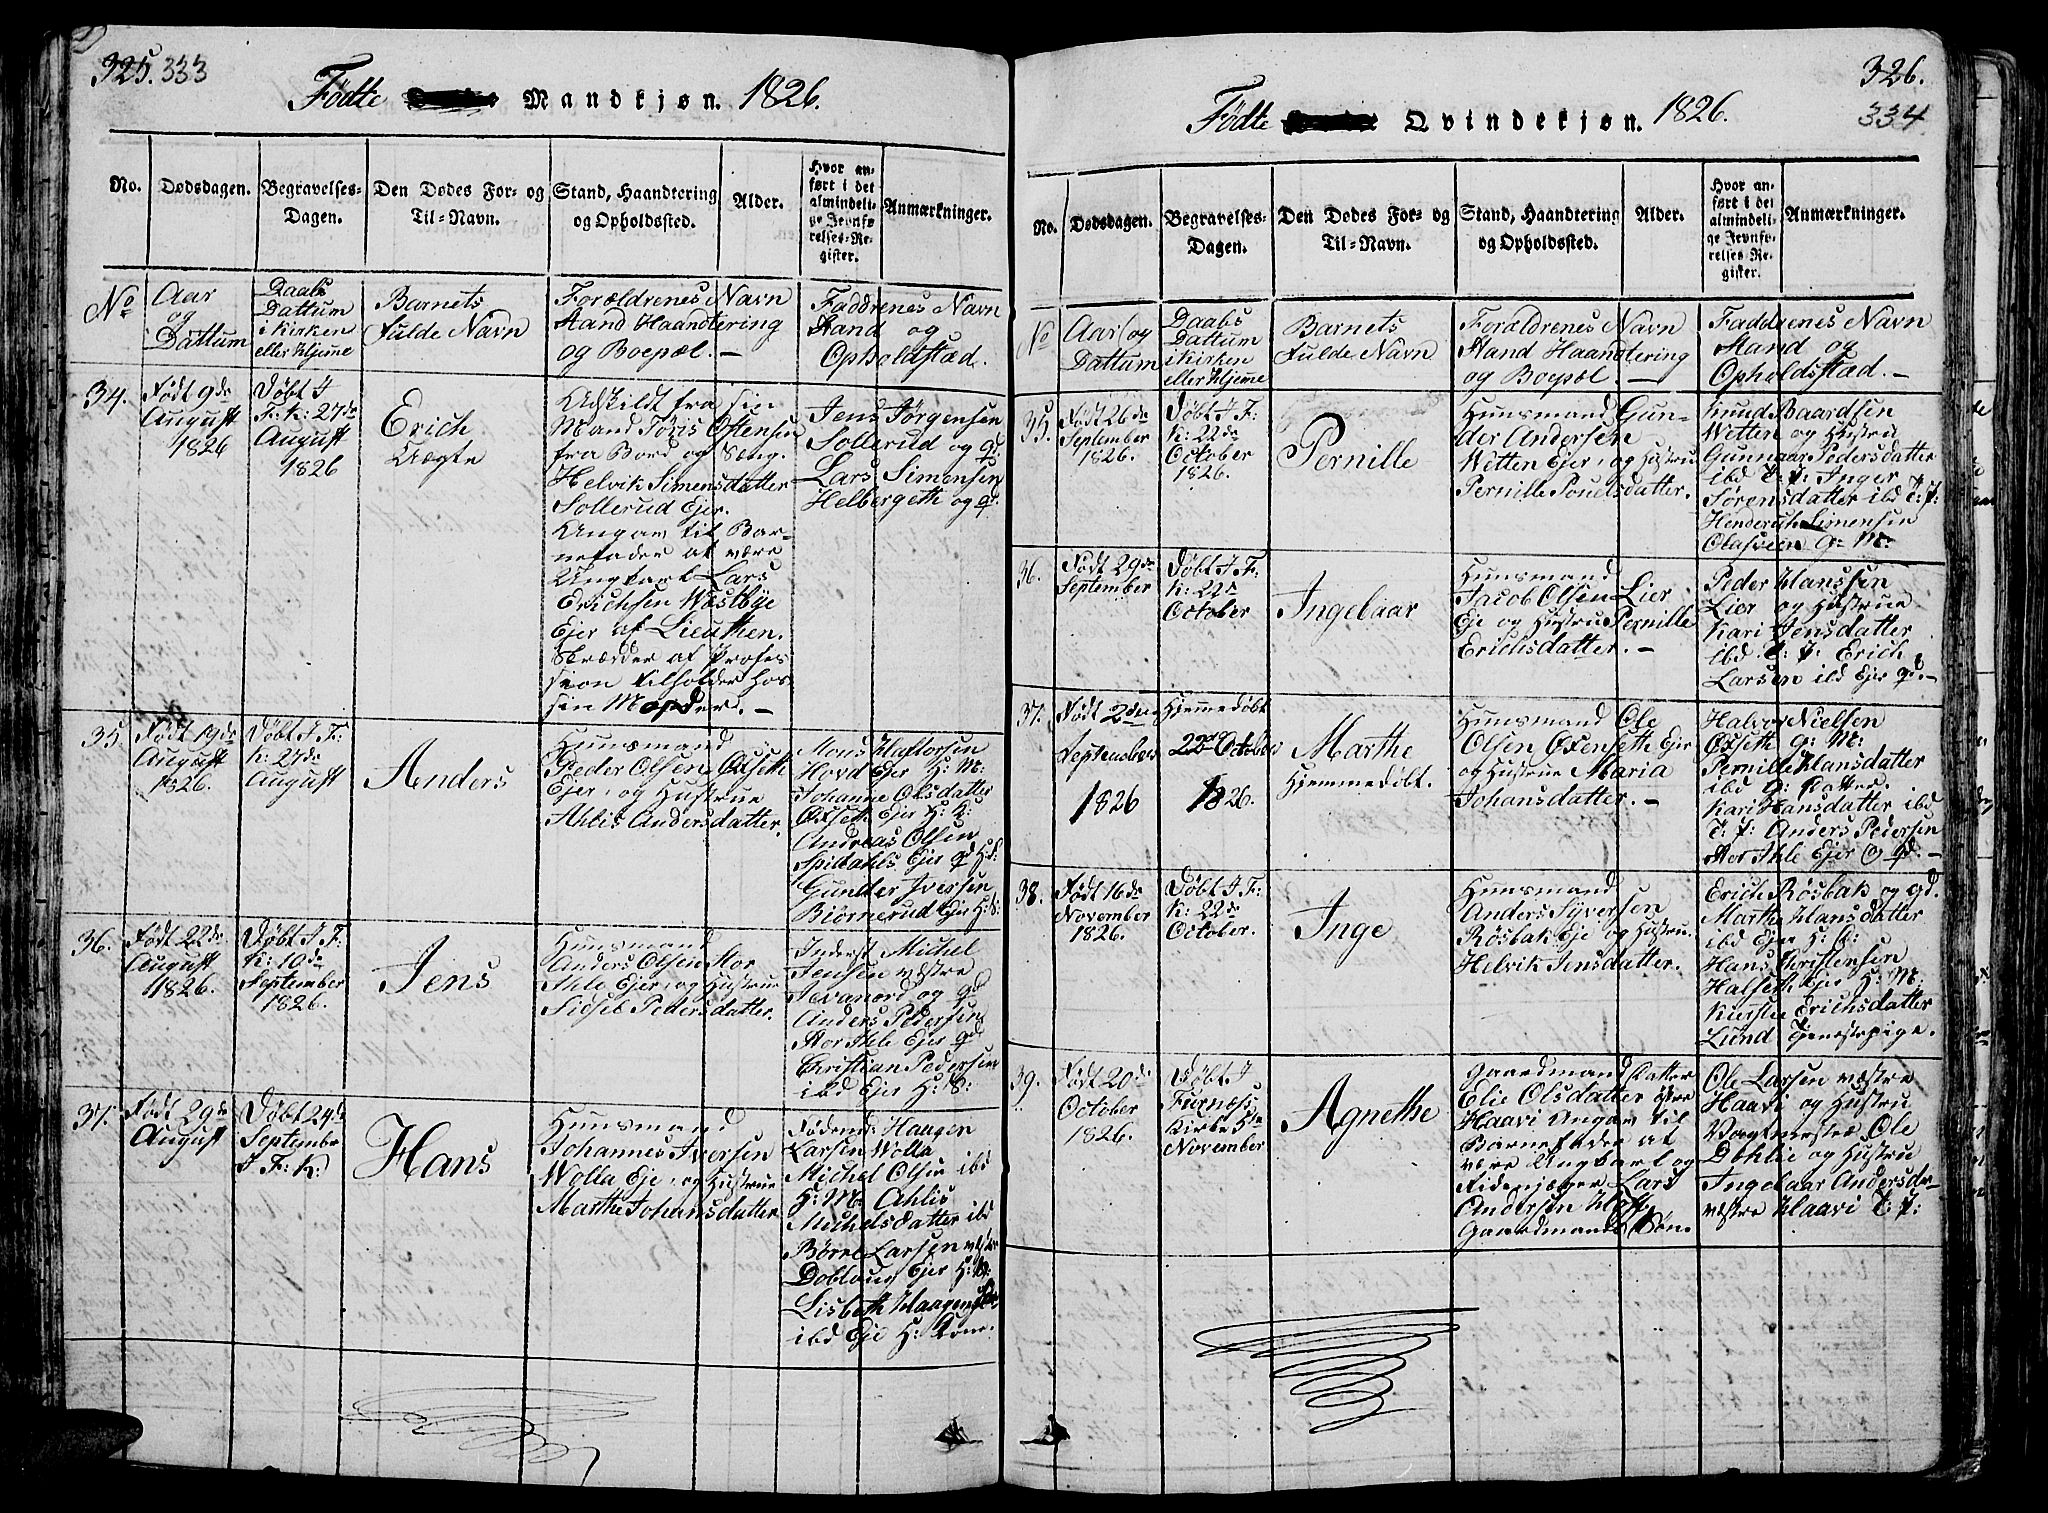 325. 333
Fødte Mandkjøn. 1826.
No.
Dødsdagen.
Begravelses-
Dagen.
Den Dødes For- og
Til-Navn.
Stand, Haandtering
og Opholdssted.
Alder.
Hvor an-
ført i det
almindeli-
ge Jevnfø-
relses-Re-
gister.
Anmærkninger.
No
Aar
og
Dattum
Daabs
Dattum
i Kirken
eller Hjeme
Barnets
Fulde Navn
Forældrenes Navn
Stand Haandtering
og Boepæl. —
Faddrenes Navn
Stand og
Opholdstæd.
34.
Født 9de
August
1826
Døbt I
F: K: 27de
August
1826
Erich
Uægte
Adskildt fra sin
Mand Tøris Ostensen
fra Bord og Seng.
Helvik Simensdatter
Sollerud Ejer.
Angav til Bar-
nefader at være
Ungkarl Lars
Erichsen Westbye
Ejer af Lieuthen.
Skrædder af Profes
sion tilholder hos
sin Moder. —
Jens Jørgensen
Sollerud og q:
Lars Simensen
Helbergeth og q.
35
Født 19de
August
1826.
Døbt I F:
K: 27de
August
Anders
Huusmand
Peder Olsen Oxseth
Ejer, og Hustrue
Ahlis Andersdatter.
Mons Halvorsen
Hovd Ejer H: M:
Johanne Olsdatter
Oxseth Ejer H: K:
Andreas Olsen
Ejer
Gunder Iversen
Biørnerud Eje H: S:
36.
Født 22de
August
1826.
Døbt I F:
K: 10de
September
1826.
Jens
Huusmand
Anders Olsen Stor
Ihle Ejer, og Hustrue
Sidsel Pedersdatter.
Inderst Michel
Jensen væstre
Jevanord og qd
Anders Pedersen
Stor Ihle Ejer qd
Christian Pedersen
ibd Ejer H: S:
37.
Født 29de
August
Døbt 24de
Septembr
I F: K:
Hans
Huusmand
Johannes Iversen
Wolla Eje, og Hustrue
Marthe Johansdatter
Haagen
Larsen Wolla
Michel Olsen ibd
H: M: Ahlis
Michelsdatter ibd
Børre Larsen
Dobloug Ejer H:
Lisbeth Haagens
ibd Eje H: Kone.
326.
334
Fødte Qvindekjøn. 1826.
No.
Dødsdagen.
Begravelses-
Dagen.
Den Dødes For- og
Til-Navn.
Stand, Haandtering
og Opholdssted.
Alder.
Hvor an-
ført i det
almindeli-
ge Jevnfø-
relses-Re-
gister.
Anmærkninger.
No
Aar og
Dattum
Daabs
Dattum
i Kirken
eller Hjeme
Barnets
Fulde Navn
Forældrenes Navn
Stand Haandtering
og Boepæl. —
Faddrenes Navn
Stand og
Opholdstæd. —
35.
Født 26de
September
1826.
Døbt I F:
K: 22de
October
1826.
Pernille
Huusmand Gun-
der Andersen
Wetten Ejer, og Hustru
Pernille Pouelsdatter.
Knud Baardsen
Wetten og Hustru
Gunnaar Pedersdatter
ibd T: P: Inger
Sørensdatter ibd T: P:
Henderich Simensen
Olasveen q: M:
36.
Født 29de
September
Døbt I F:
K: 22de
October
Ingebaar
Huusmand
Jacob Olsen Lier
Eje og Hustru Pernille
Erichsdatter. —
Peder Hanssen
Lier og Hustrue
Kari Jensdatter
ibd T: P: Erich
Larsen ibd Ejer qd. —
37.
Født 2den
September
1826
Hjemmedøbt
22de October
1826.
Marthe
Hjemmedøbt.
Huusmand Ole
Olsen Oxenseth Ejer
og Hustrue Maria
Johansdatter. —
Halvor Nielsen
Oxseth q: M:
Pernille Hansdatter
ibd q: Datter.
Kari Hansdatter ibd
T: P: Anders Pedersen
Stor Ihle Ejer qd. —
38.
Født 16de
November
1826.
Døbt I F:
K: 22de
October.
Inge
Huusmand
Anders Syversen
Røsbak Eje og Hustru
Helvik Jensdatter.
Erich Røsbak og qd.
Marthe Hansdatter
ibd Ejer H:
Hans Christensen
Halseth Ejer H: M:
Kierstie Erichsdatter
Lund Tjenestepige.
39.
Født 20de
October
1826.
Døbt I
Furnæs
Kirke 5te
November
Agnethe
Gaardmand Datter
Elie Olsdatter østre
Haavi Angav til
Barnefader at
være Ungkarl og
Lars
Andersen
Gaardmands Søn.
Ole Larsen væstre
Haavi og Hustru
Ole
Dehlie og Hustru
Ingebaar Andersd-
væstre Haavi T: P: